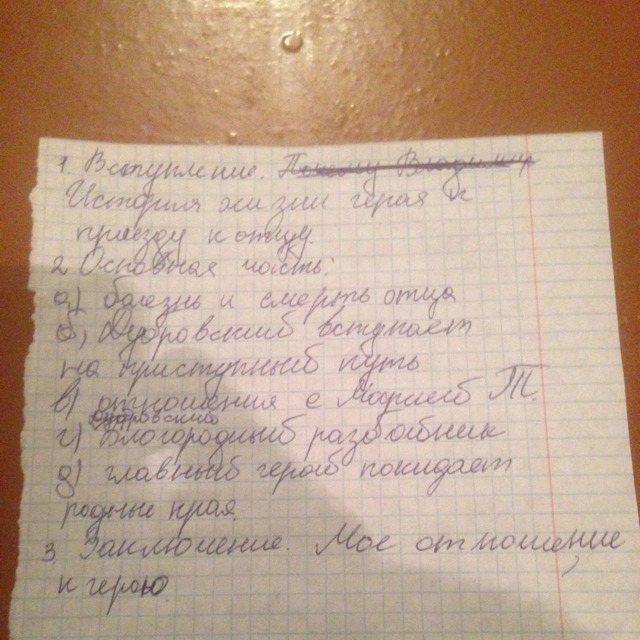 1. Вступление. Почему Владимир
История жизни героя к
приезду к отцу.
2 Основная часть:
а) болезнь и смерть отца
б) Дубровский вступает
на приступный путь
в) отношения с Марией Т.
Дубровский
г) благородный разбойник
д) главный герой покидает
родные края.
3. Заключение. Мое отношение,
к герою.